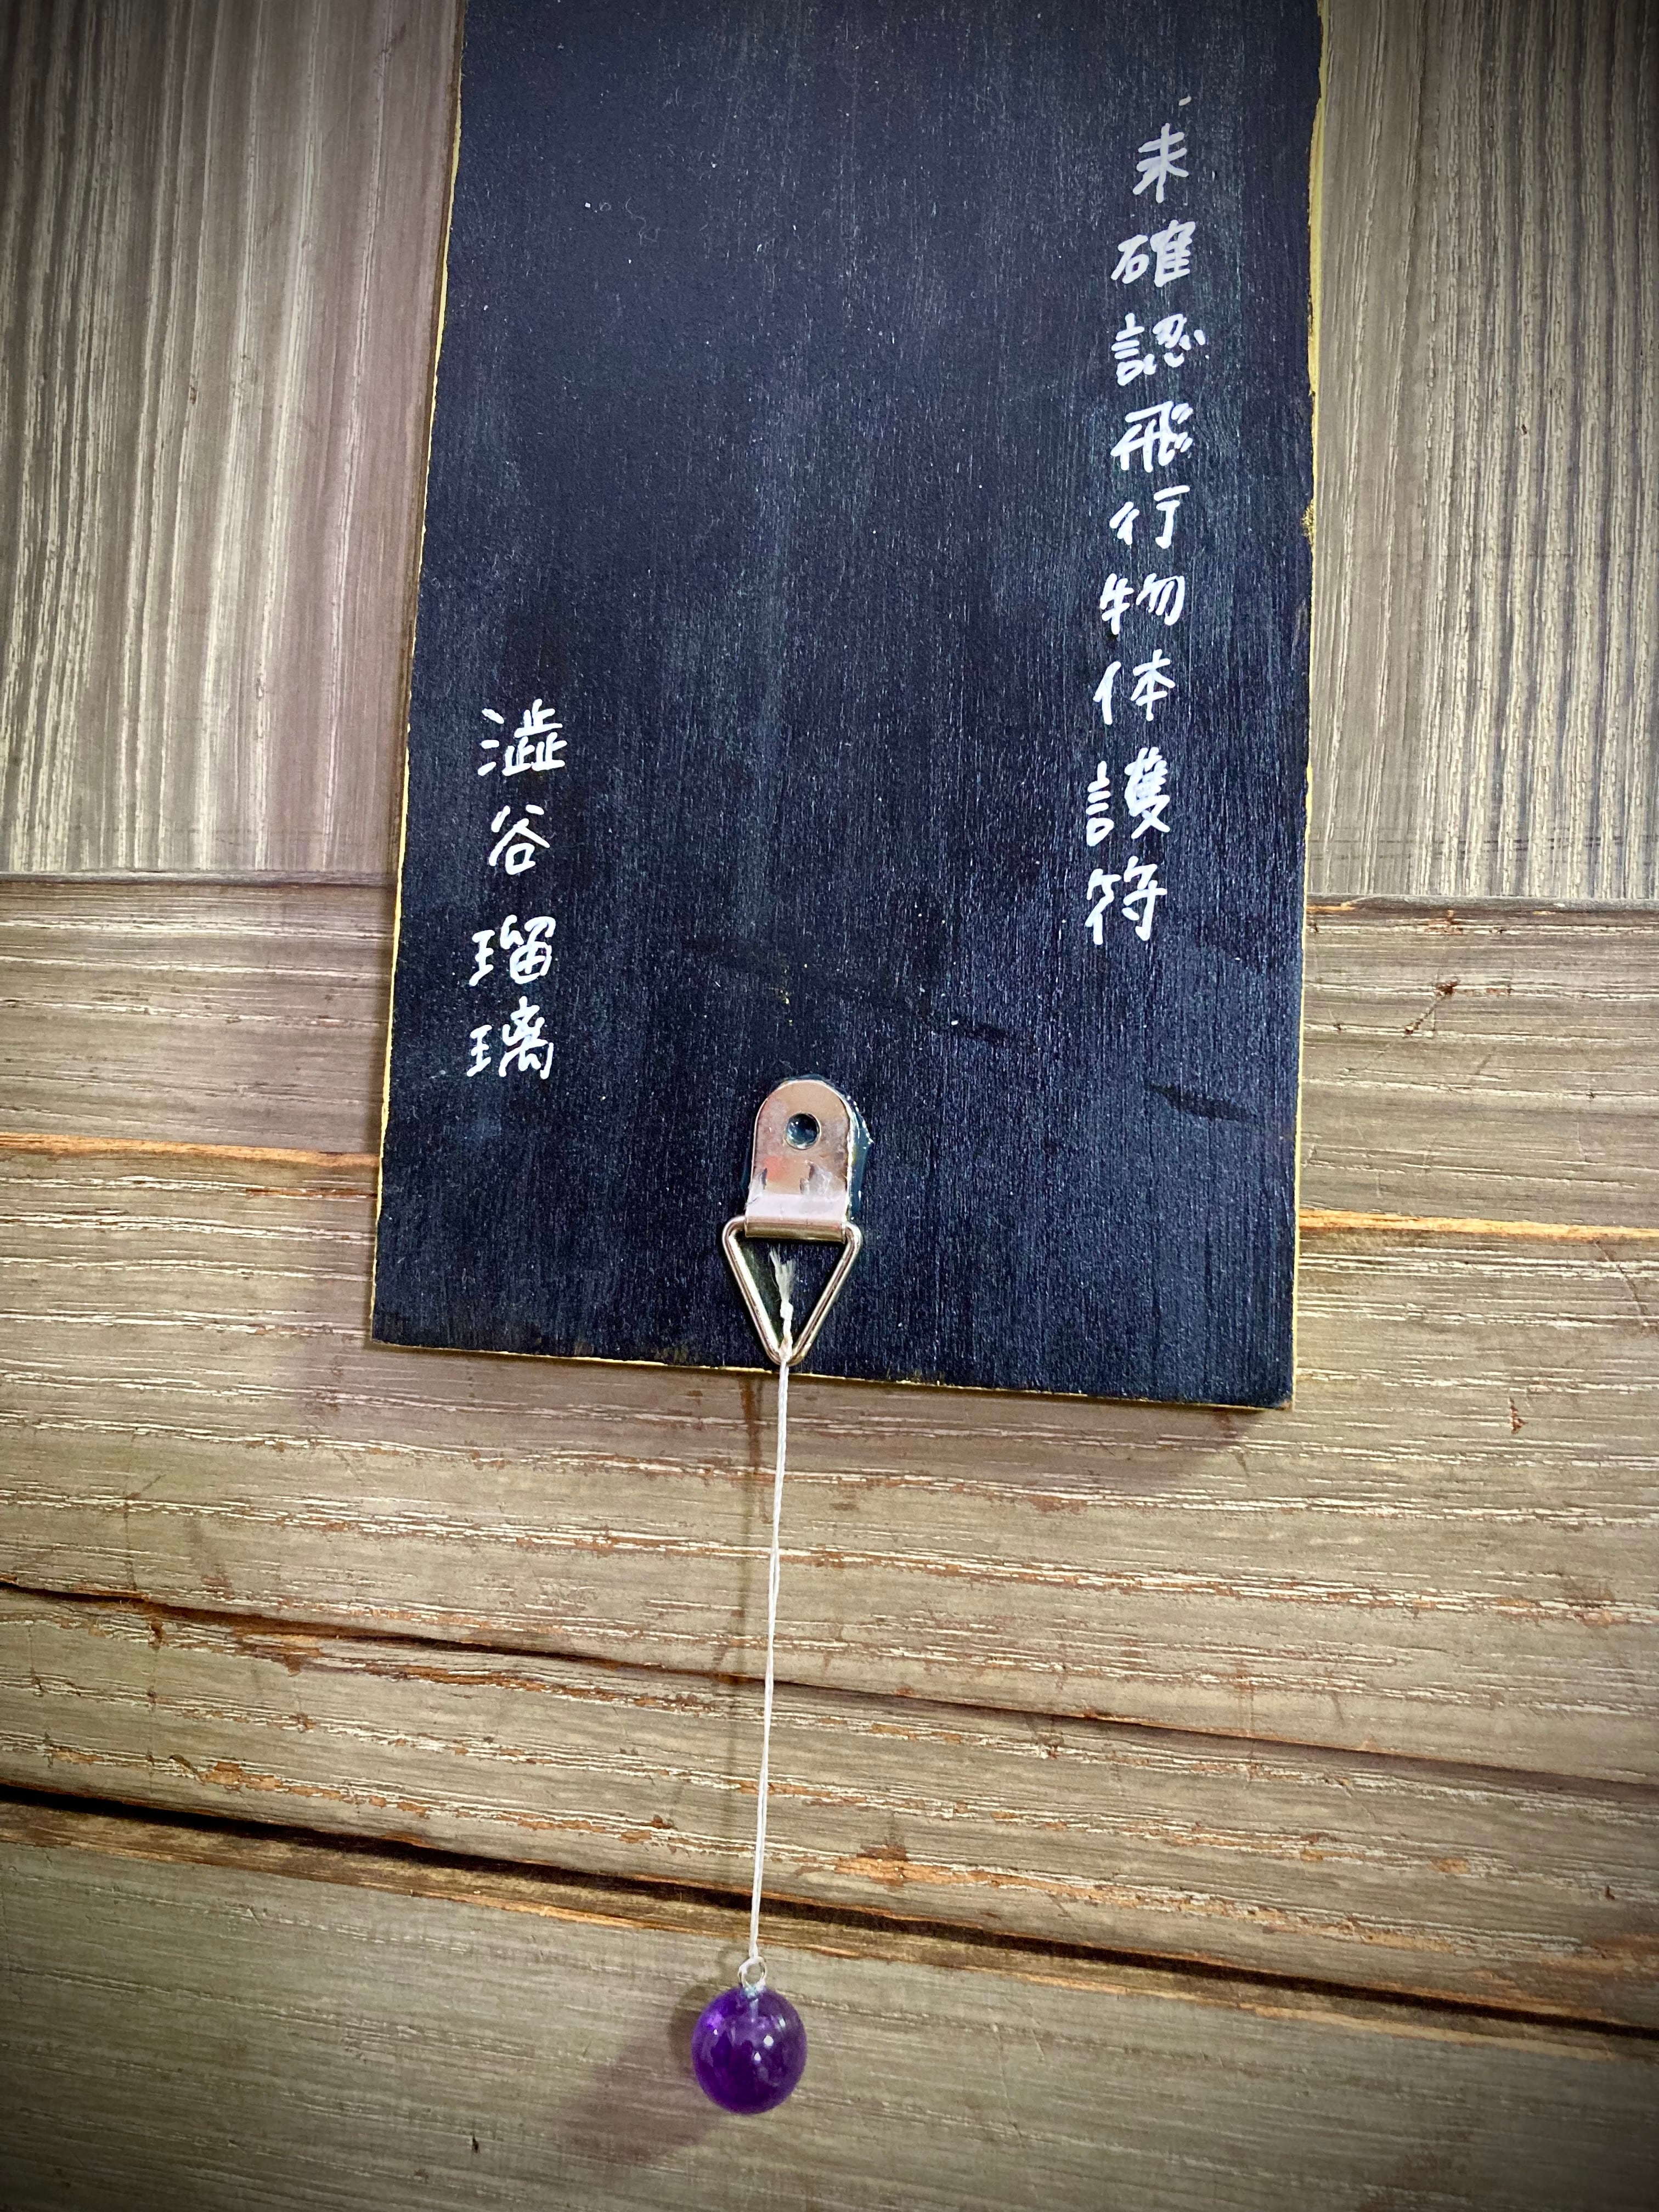 未確認飛行物体護符
澁谷瑠璃